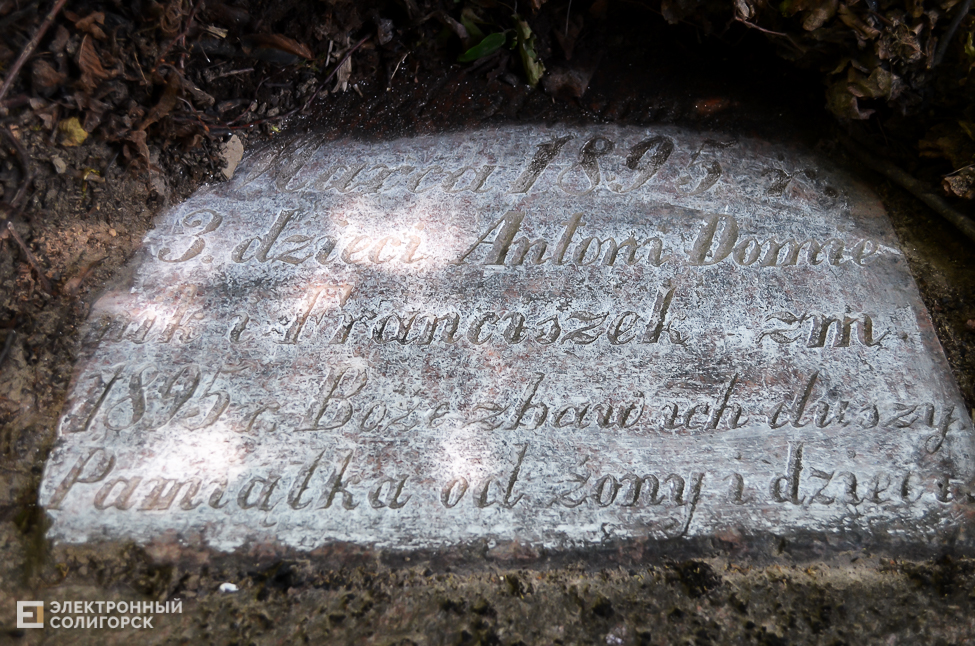 Marca 1895 r.
3 dzieci Antoni Domie
nik i Franciszek zm.
1895 r. Boże zbaw ich duszy
Pamiątka od żony i dzieci
ЭЛЕКТРОННЫЙ
СОЛИГОРСК